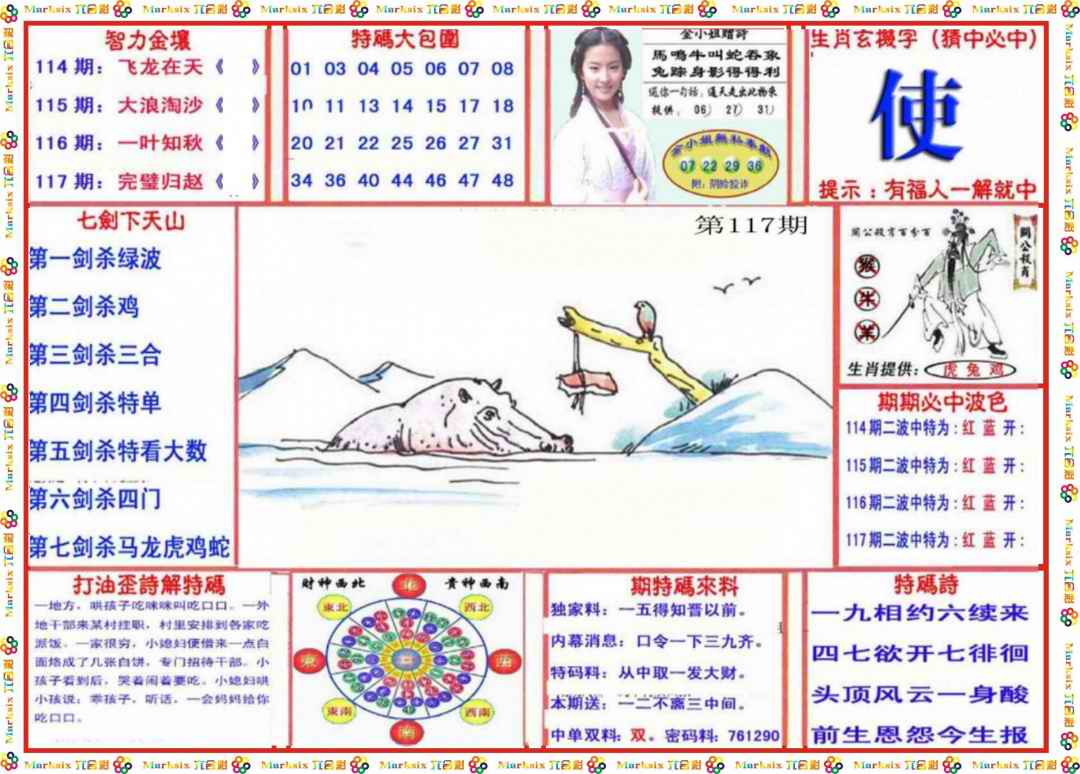 智力金壤
114期：飞龙在天《　》
115期：大浪淘沙《　》
116期：一叶知秋《　》
117期：完璧归赵《　》
特碼大包圍
01 03 04 05 06 07 08
10 11 13 14 15 17 18
20 21 22 25 26 27 31
34 36 40 44 46 47 48
金小姐赠詩
馬鳴牛叫蛇吞象
兔跡身影得得利
送你一句話，通天走出此物来
提供：06） 27） 31）
07 22 29 36
附：阴险狡诈
生肖玄機字（猜中必中）
使
提示：有福人一解就中
七劍下天山
第一剑杀绿波
第二剑杀鸡
第三剑杀三合
第四剑杀特单
第五剑杀特看大数
第六剑杀四门
第七剑杀马龙虎鸡蛇
第117期
關公殺肖百分百
關公殺肖
猴
羊
生肖提供：虎 兔 鸡
期期必中波色
114期二波中特为：红 蓝 开：
115期二波中特为：红 蓝 开：
116期二波中特为：红 蓝 开：
117期二波中特为：红 蓝 开：
打油歪詩解特碼
一地方，哄孩子吃咪咪叫吃口口。一外
地干部来某村挂职，村里安排到各家吃
派饭。一家很穷，小媳妇便借来一点白
面烙成了几张白饼，专门招待干部。小
孩子看到后，哭着闹着要吃。小媳妇哄
小孩说：乖孩子，听话，一会妈妈给你
吃口口。
財神西北
貴神西南
北
東北
西北
東
西
東南
西南
南
期特碼來料
独家料：一五得知晋以前。
内幕消息：口令一下三九齐。
特码料：从中取一发大财。
本期送：一二不离三中间。
中单双料：双。密码料：761290
特碼詩
一九相约六续来
四七欲开七徘徊
头顶风云一身酸
前生恩怨今生报